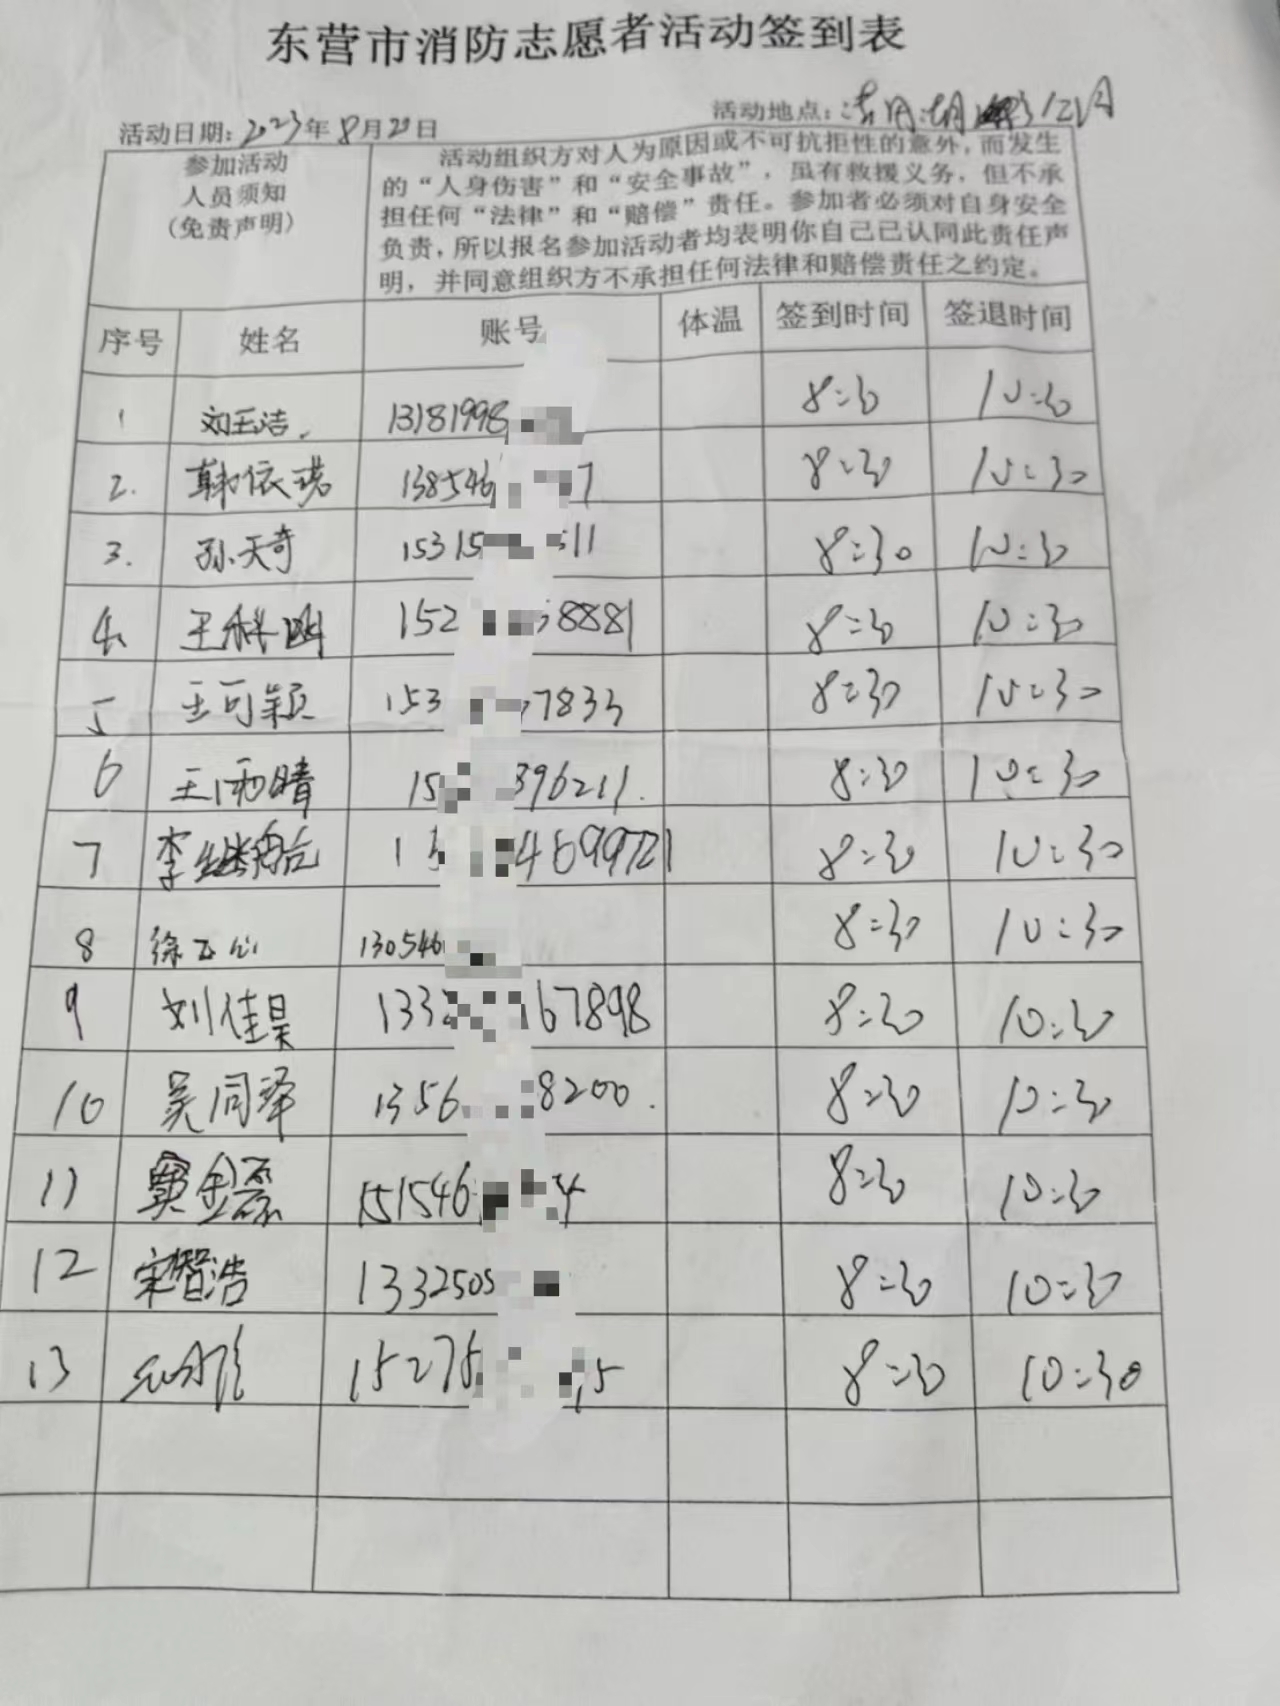 东营市消防志愿者活动签到表
活动日期：2023年8月20日 活动地点：清风湖
参加活动
人员须知
（免责声明）
活动组织方对人为原因或不可抗拒性的意外，而发生
的“人身伤害”和“安全事故”，虽有救援义务，但不承
担任何“法律”和“赔偿”责任。参加者必须对自身安全
负责，所以报名参加活动者均表明你自己已认同此责任声
明，并同意组织方不承担任何法律和赔偿责任之约定。
序号 姓名 账号 体温 签到时间 签退时间
1 刘玉洁. 13181998 8:30 10:30
2. 韩依诺 138546 7 8:30 10:30
3. 孙天奇 5315 511 8:30 10:30
4. 王科 152 58881 8:30 10:30
5 王可颖 153 7833 8:30 10:30
6 王雨晴 15 396211. 8:30 10:30
7 李继 15 4699721 8:30 10:30
8 徐 心 130546 8:30 10:30
9 刘佳昊 133 167898 8:30 10:30
10 吴同泽 1356 8200. 8:30 10:30
11 窦金磊 151546 4 8:30 10:30
12 宋智浩 1332505 8:30 10:30
13 15275 5 8:30 10:30